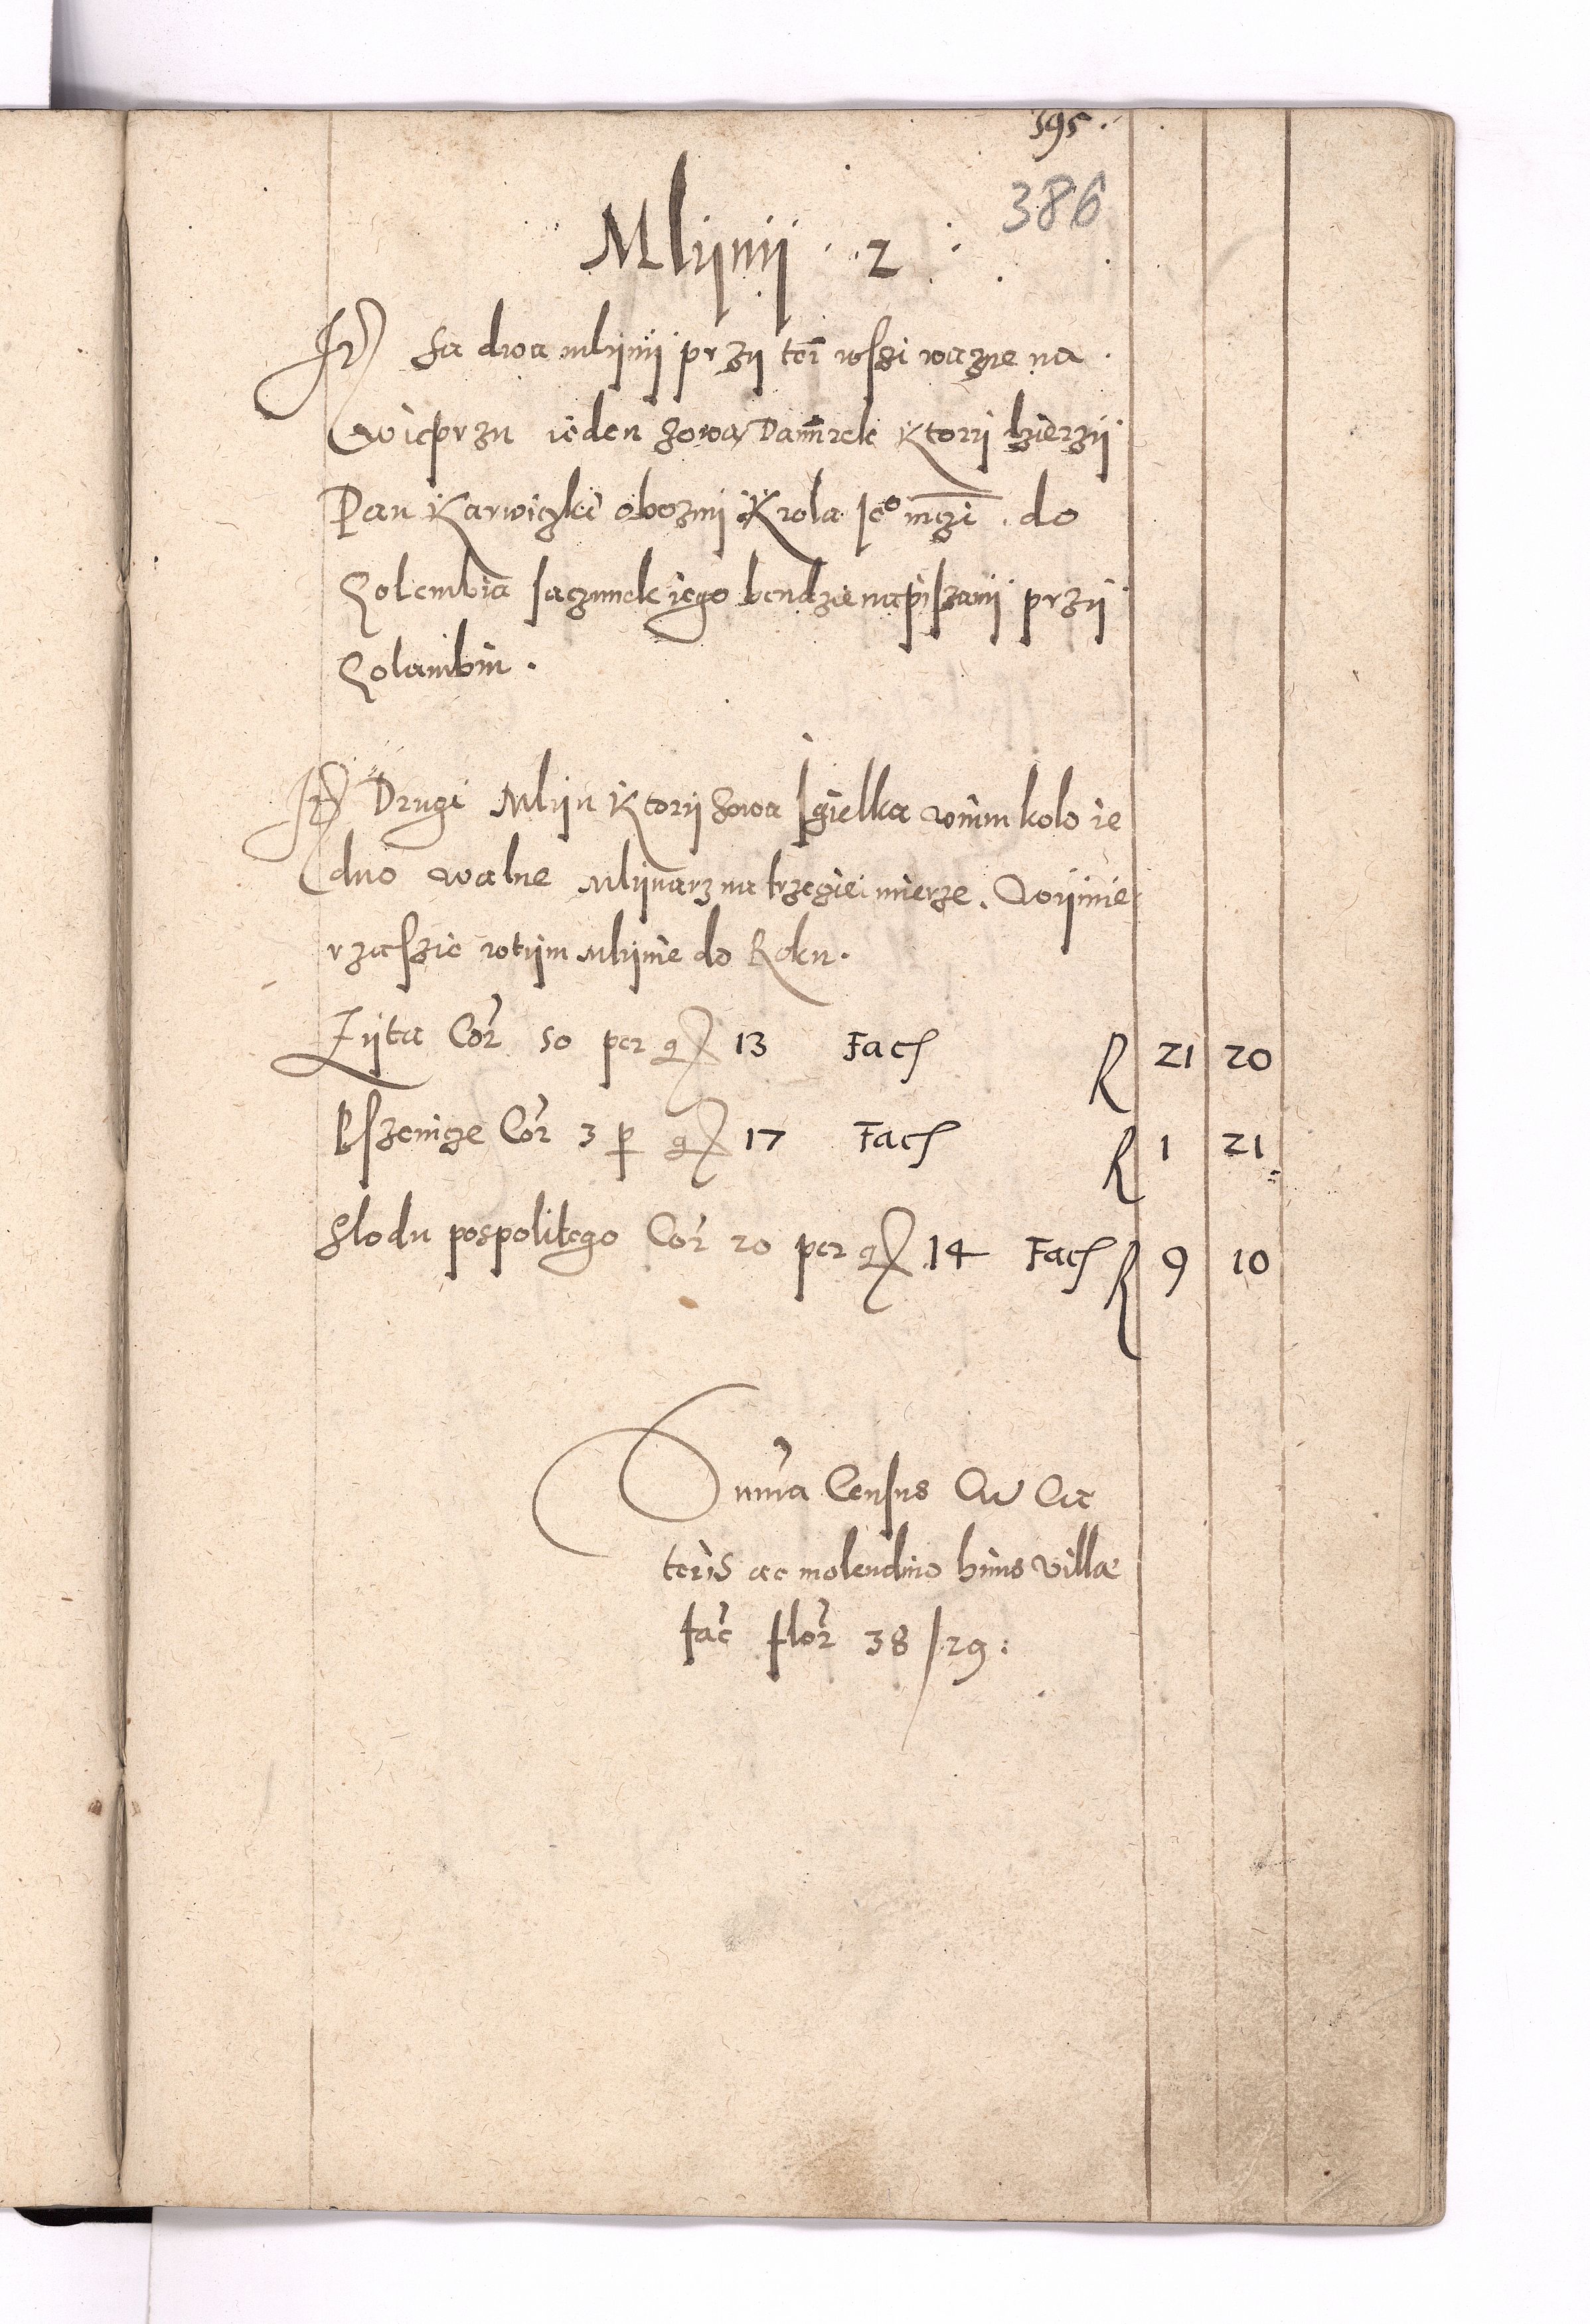 595.
386
Mlijnij 2
It Sa dwa mlijnij przij tei wsszi wazne na
Wieprzu ieden zowa Damrek Ktorij dzierzij
Pan Karwiczki obozni Krola Ieo mczi . do
Golembia saczunek iego bendzie napiszanij przij
Golambiu .
It Drugi Mlijn Ktorij zowa Igielka wnim kolo ie
dno walne Mlijnarz na trzeczie mierze . Wijmie
rza szie wtijm Mlijnie do Roku .
Zijta Cor 50 per gr 13 Fac R 21 20
Pszenicze Cor 3 p gr 17 Fac R 1 21
Slodu pospolitego Cor 20 per gr 14 Fac R 9 10
Summa Census Cu Cae
teris ac molendino huius villae
fac flor 38 / 29 :